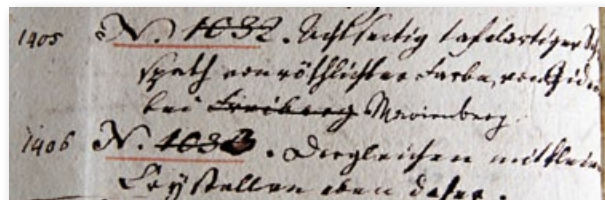 1405 N. 1032. Achtseitig tafelartiger
spath von röthlichter Farbe, von
bei Freiberg Marienberg.
1406 N. 1033. Dergleichen mit klein
Crystallen eben daher.